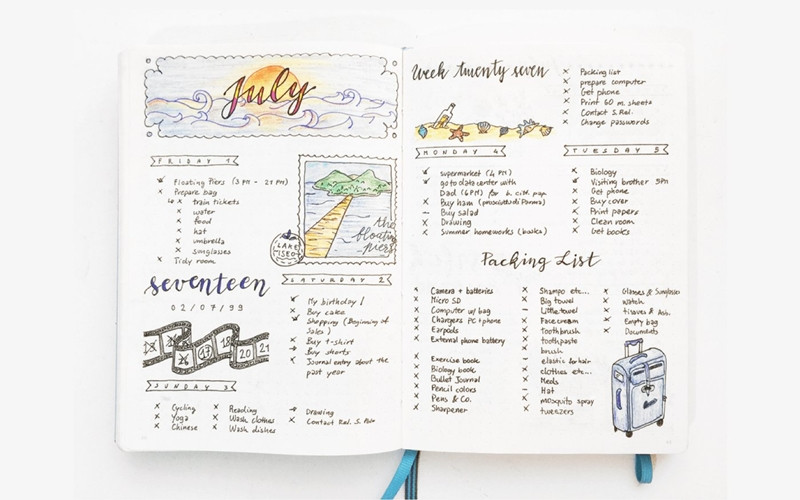 July
FRIDAY 1
Floating Piers (3 PM - 21 PM)
Prepare bag
train tickets
water
food
hat
umbrella
sunglasses
Tidy room
the
floating
piers
LAKE
ISEO
seventeen
02/07/99
SATURDAY 2
My birthday!
Buy cake
Shopping (Beginning of
Sales)
Buy t-shirt
Buy shorts
Journal entry about the
past year
17
18
20
21
SUNDAY 3
Cycling
Yoga
Chinese
Reading
Wash clothes
Wash dishes
Drawing
Contact Rel. S.
Week twenty seven
Packing list
prepare computer
Get phone
Print 60 m. sheets
Contact S. Rel.
Change passwords
MONDAY 4
supermarket (4 PM)
go to data center with
Dad (6 PM) for
Buy ham (prosciutto di Parma)
Buy salad
Drawing
Summer homeworks (books)
TUESDAY 5
Biology
Visiting brother 5PM
Get phone
Buy cover
Print papers
Clean room
Get books
Packing List
Camera + batteries
Micro SD
Computer w/ bag
Chargers PC + phone
Earpods
External phone battery
Exercise book
Biology book
Bullet Journal
Pencil colors
Pens & Co.
Sharpener
Shampo etc...
Big towel
Little towel
Face cream
toothbrush
toothpaste
brush
elastic & hair
clothes etc...
Meds
Hat
mosquito spray
tweezers
Glasses & Sunglasses
watch
tissues & Ash.
Empty bag
Documents